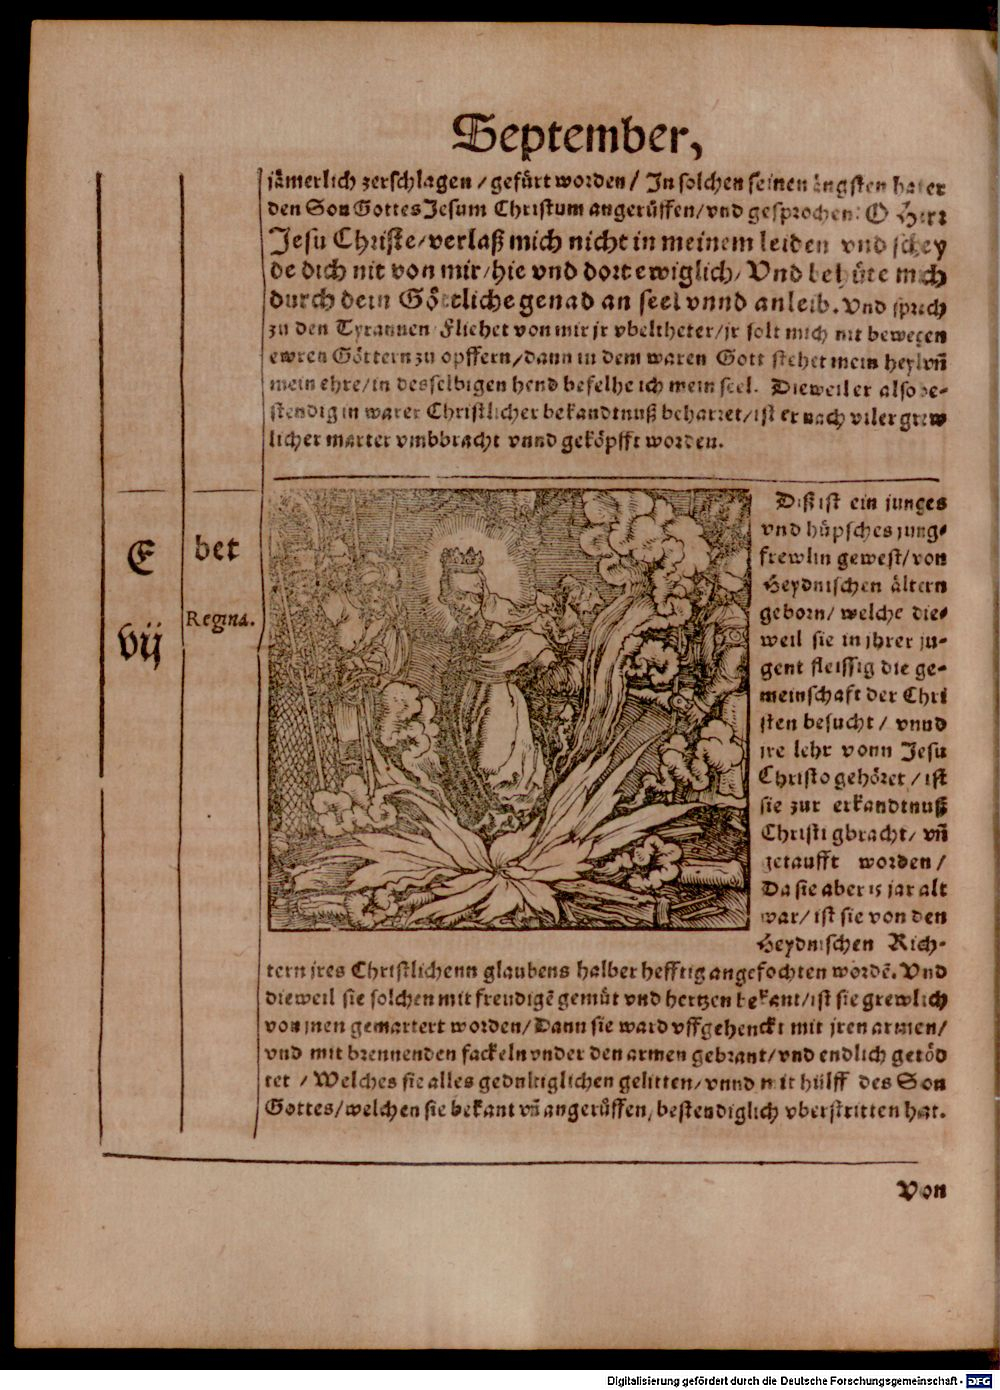 September,
jämerlich zerschlagen / gefürt worden / In solchen seinen ängsten hat er
den Son Gottes Jesum Christum angerüffen / vnd gesprochen: O Herr
Jesu Christe / verlaß mich nicht in meinem leiden vnd schey
de dich nit von mir / hie vnd dort ewiglich / Vnd behüte mich
durch dein Göttliche genad an seel vnnd an leib. Vnd sprach
zu den Tyrannen Fliehet von mir jr vbeltheter / jr solt mich nit bewegen
ewren Göttern zu opffern / dann in dem waren Gott stehet mein heyl vñ
mein ehre / in desselbigen hend befelhe ich mein seel. Dieweil er also be-
stendig in warer Christlicher bekandtnuß beharret / ist er nach viler grew
licher marter vmbbracht vnnd geköpfft worden.
E
vij
bet
Regina.
Diß ist ein junges
vnd hüpsches jung-
frewlin gewest / von
Heydnischen ältern
geborn / welche die-
weil sie in jhrer ju-
gent fleissig die ge-
meinschaft der Chri
sten besucht / vnnd
jre lehr vonn Jesu
Christo gehöret / ist
sie zur erkandtnuß
Christi gbracht / vñ
getaufft worden /
Da sie aber 15 jar alt
war / ist sie von den
Heydnischen Rich-
tern jres Christlichenn glaubens halber hefftig angefochten wordẽ. Vnd
dieweil sie solchen mit freudigẽ gemüt vnd hertzen bekant / ist sie grewlich
von jnen gemartert worden / Dann sie ward vffgehenckt mit jren armen /
vnd mit brennenden fackeln vnder den armen gebrant / vnd endlich getöd
tet / Welches sie alles gedultiglichen gelitten / vnnd mit hülff des Son
Gottes / welchen sie bekant vñ angerüffen / bestendiglich vberstritten hat.
Von
Digitalisierung gefördert durch die Deutsche Forschungsgemeinschaft - DFG